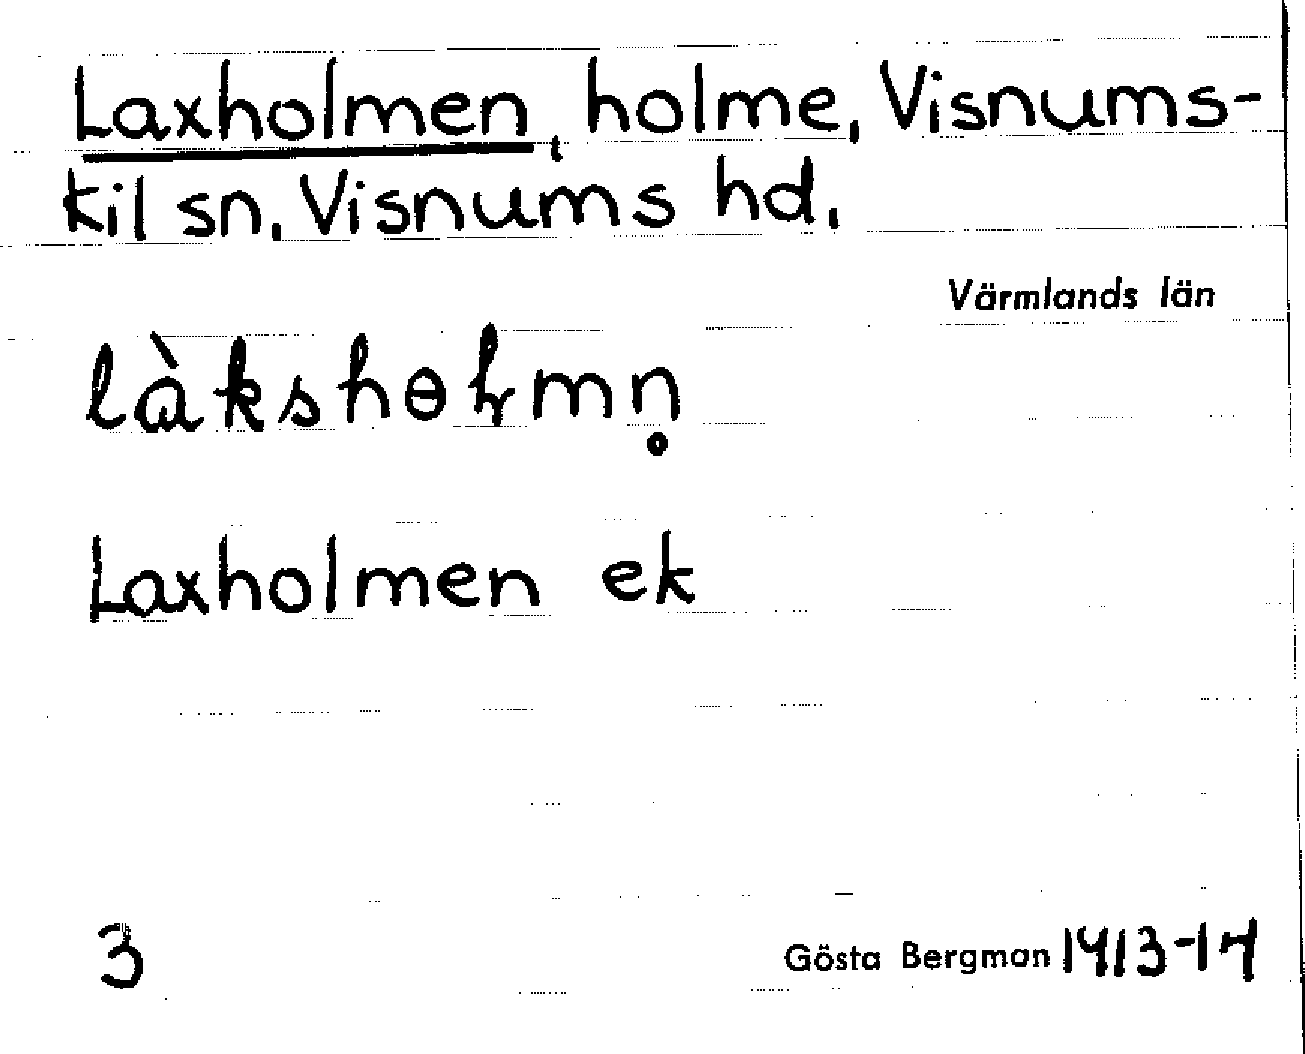 Laxholmen, holme, Visnums-
kil sn, Visnums hd,
Värmlands län
làkshɵɽmn̥
Laxholmen ek
3
Gösta Bergman 1913-14